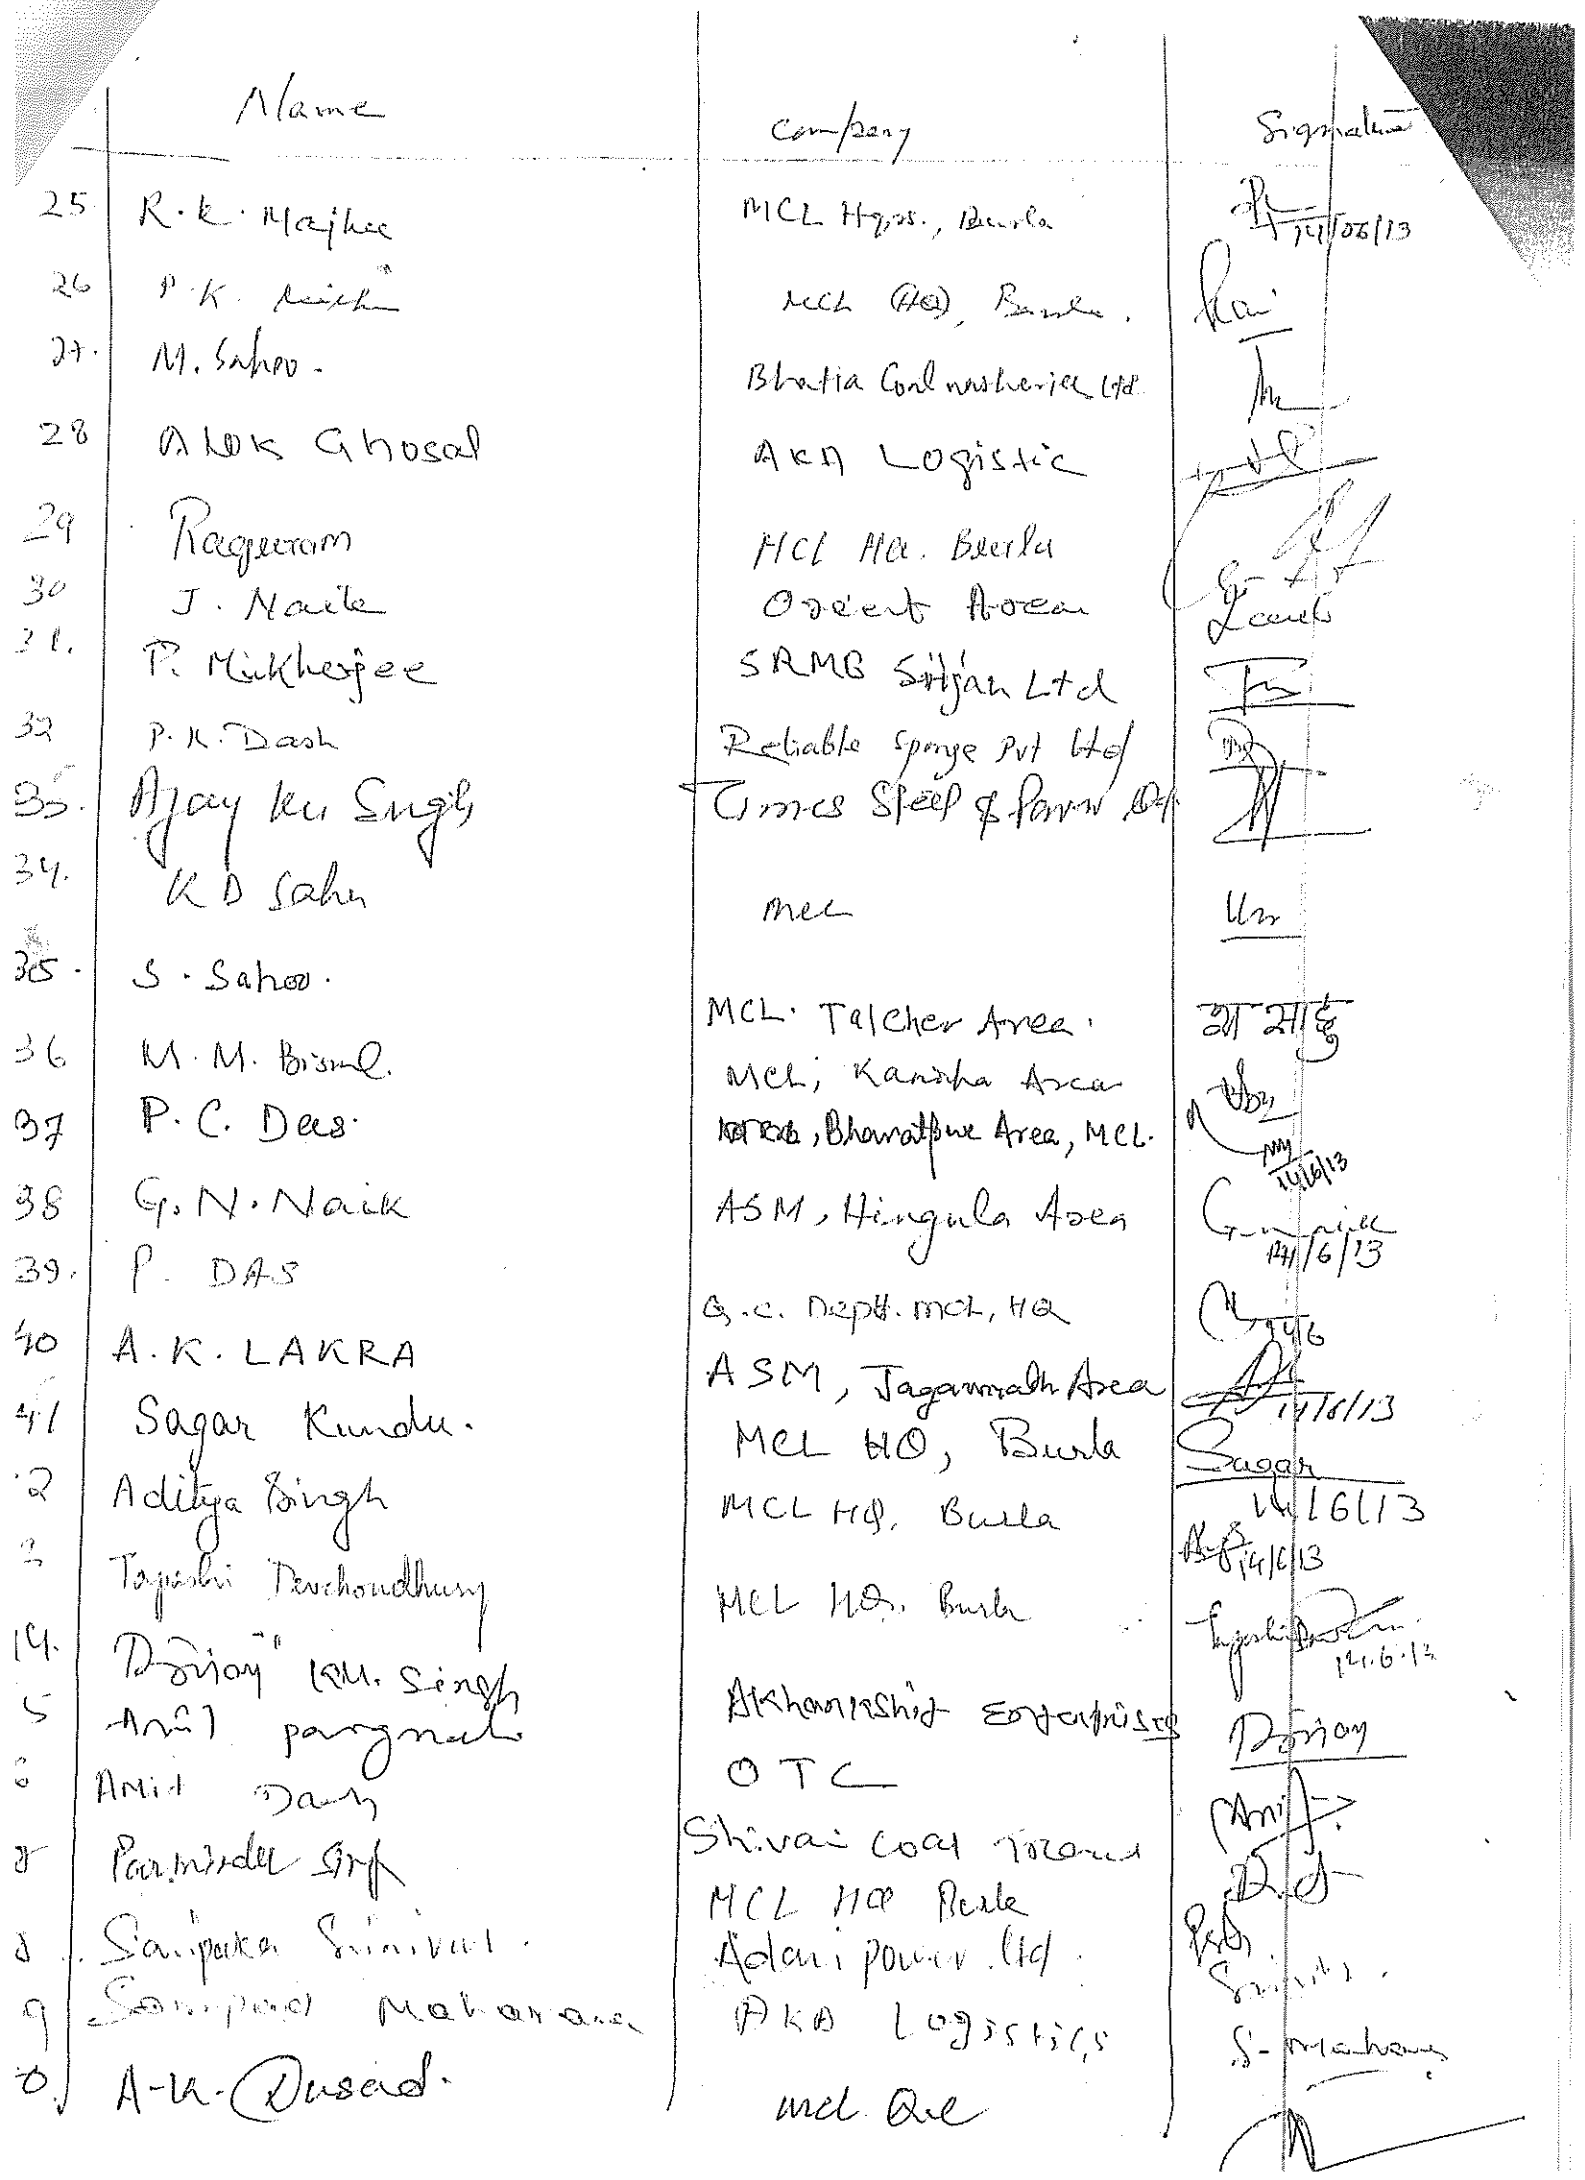 Name Company Signature
25 R.K. Majhee MCL Hqrs., Burla 14/06/13
26 P.K. MCL (HQ), Burla.
27. M. Sahoo. Bhatia Coal washeries Ltd
28 ALOK Ghosal AKA Logistic
29 Raguram MCL HQ. Burla
30 J. Naik Orient Area
31. P. Mukherjee SRMB Srijan Ltd
32 P.K. Dash Reliable Sponge Pvt Ltd
33. Ajay Ku Singh Times Steel & Power
34. K D Sahu MCL
35. S. Sahoo. MCL. Talcher Area. साहु
36 M.M. MCL, Kaniha Area
37 P.C. Das. Bharatpur Area, MCL. 14/6/13
38 G.N. Naik ASM, Hingula Area 14/6/13
39. P. DAS Q.C. Deptt. MCL, HQ 14/6
40 A.K. LAKRA ASM, Jagannath Area 14/6/13
41 Sagar Kundu. MCL HQ, Burla Sagar 14/6/13
2 Aditya Singh MCL HQ, Burla 14/6/13
3 Tapashi Devchoudhury MCL HQ. Burla 14.6.13
14. Binay KU. Singh Enterprises Binay
5 Anil OTC
6 Amit Dash Shivai Coal
Parminder Singh MCL HQ Burla
8 Saripaka Srinivas. Adani power Ltd.
9 Sampad Maharana AKA Logistics S. Maharana
0. A.K. Prasad. MCL